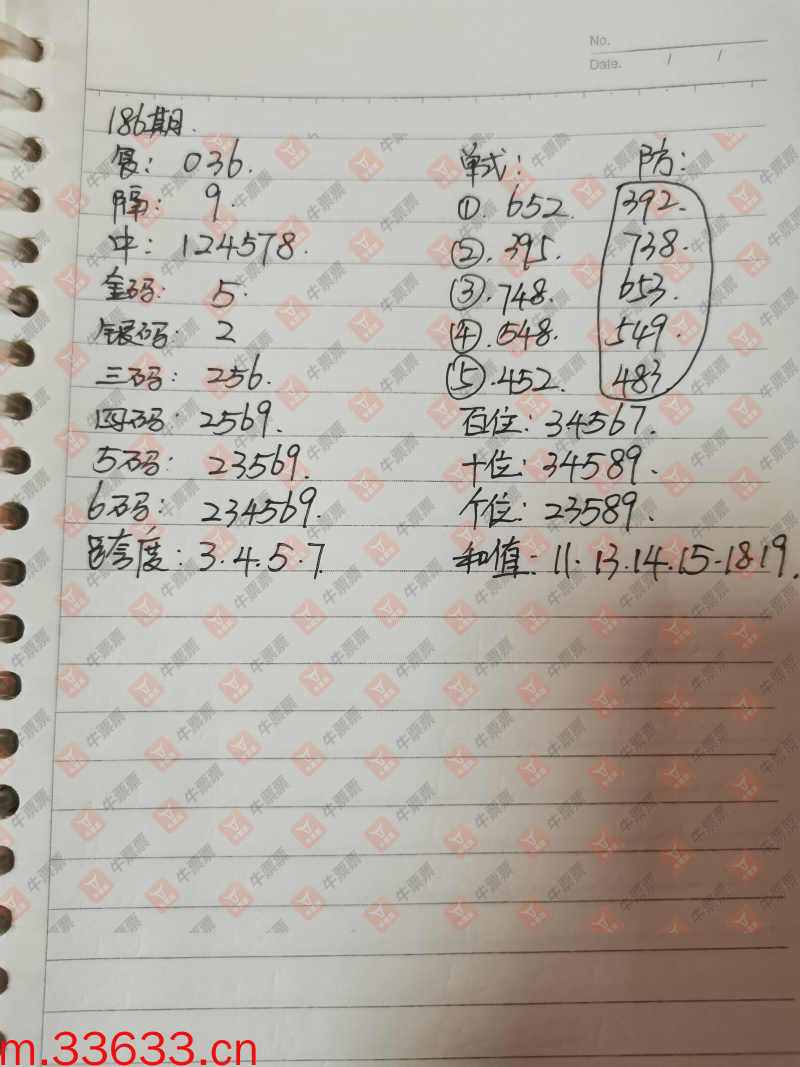 No.
Date. / /
186期.
隔: 9.
中: 124578.
金码: 5.
银码: 2
三码: 256.
四码: 2569.
5码: 23569.
6码: 234569.
跨度: 3.4.5.7.
单式: 防:
①. 652. 392.
②. 395. 738.
③. 748. 653.
④. 548. 549.
⑤. 452. 483
百位: 34567.
十位: 34589.
个位: 23589.
和值: 11.13.14.15-18.19.
036.
牛票票
m.33633.cn